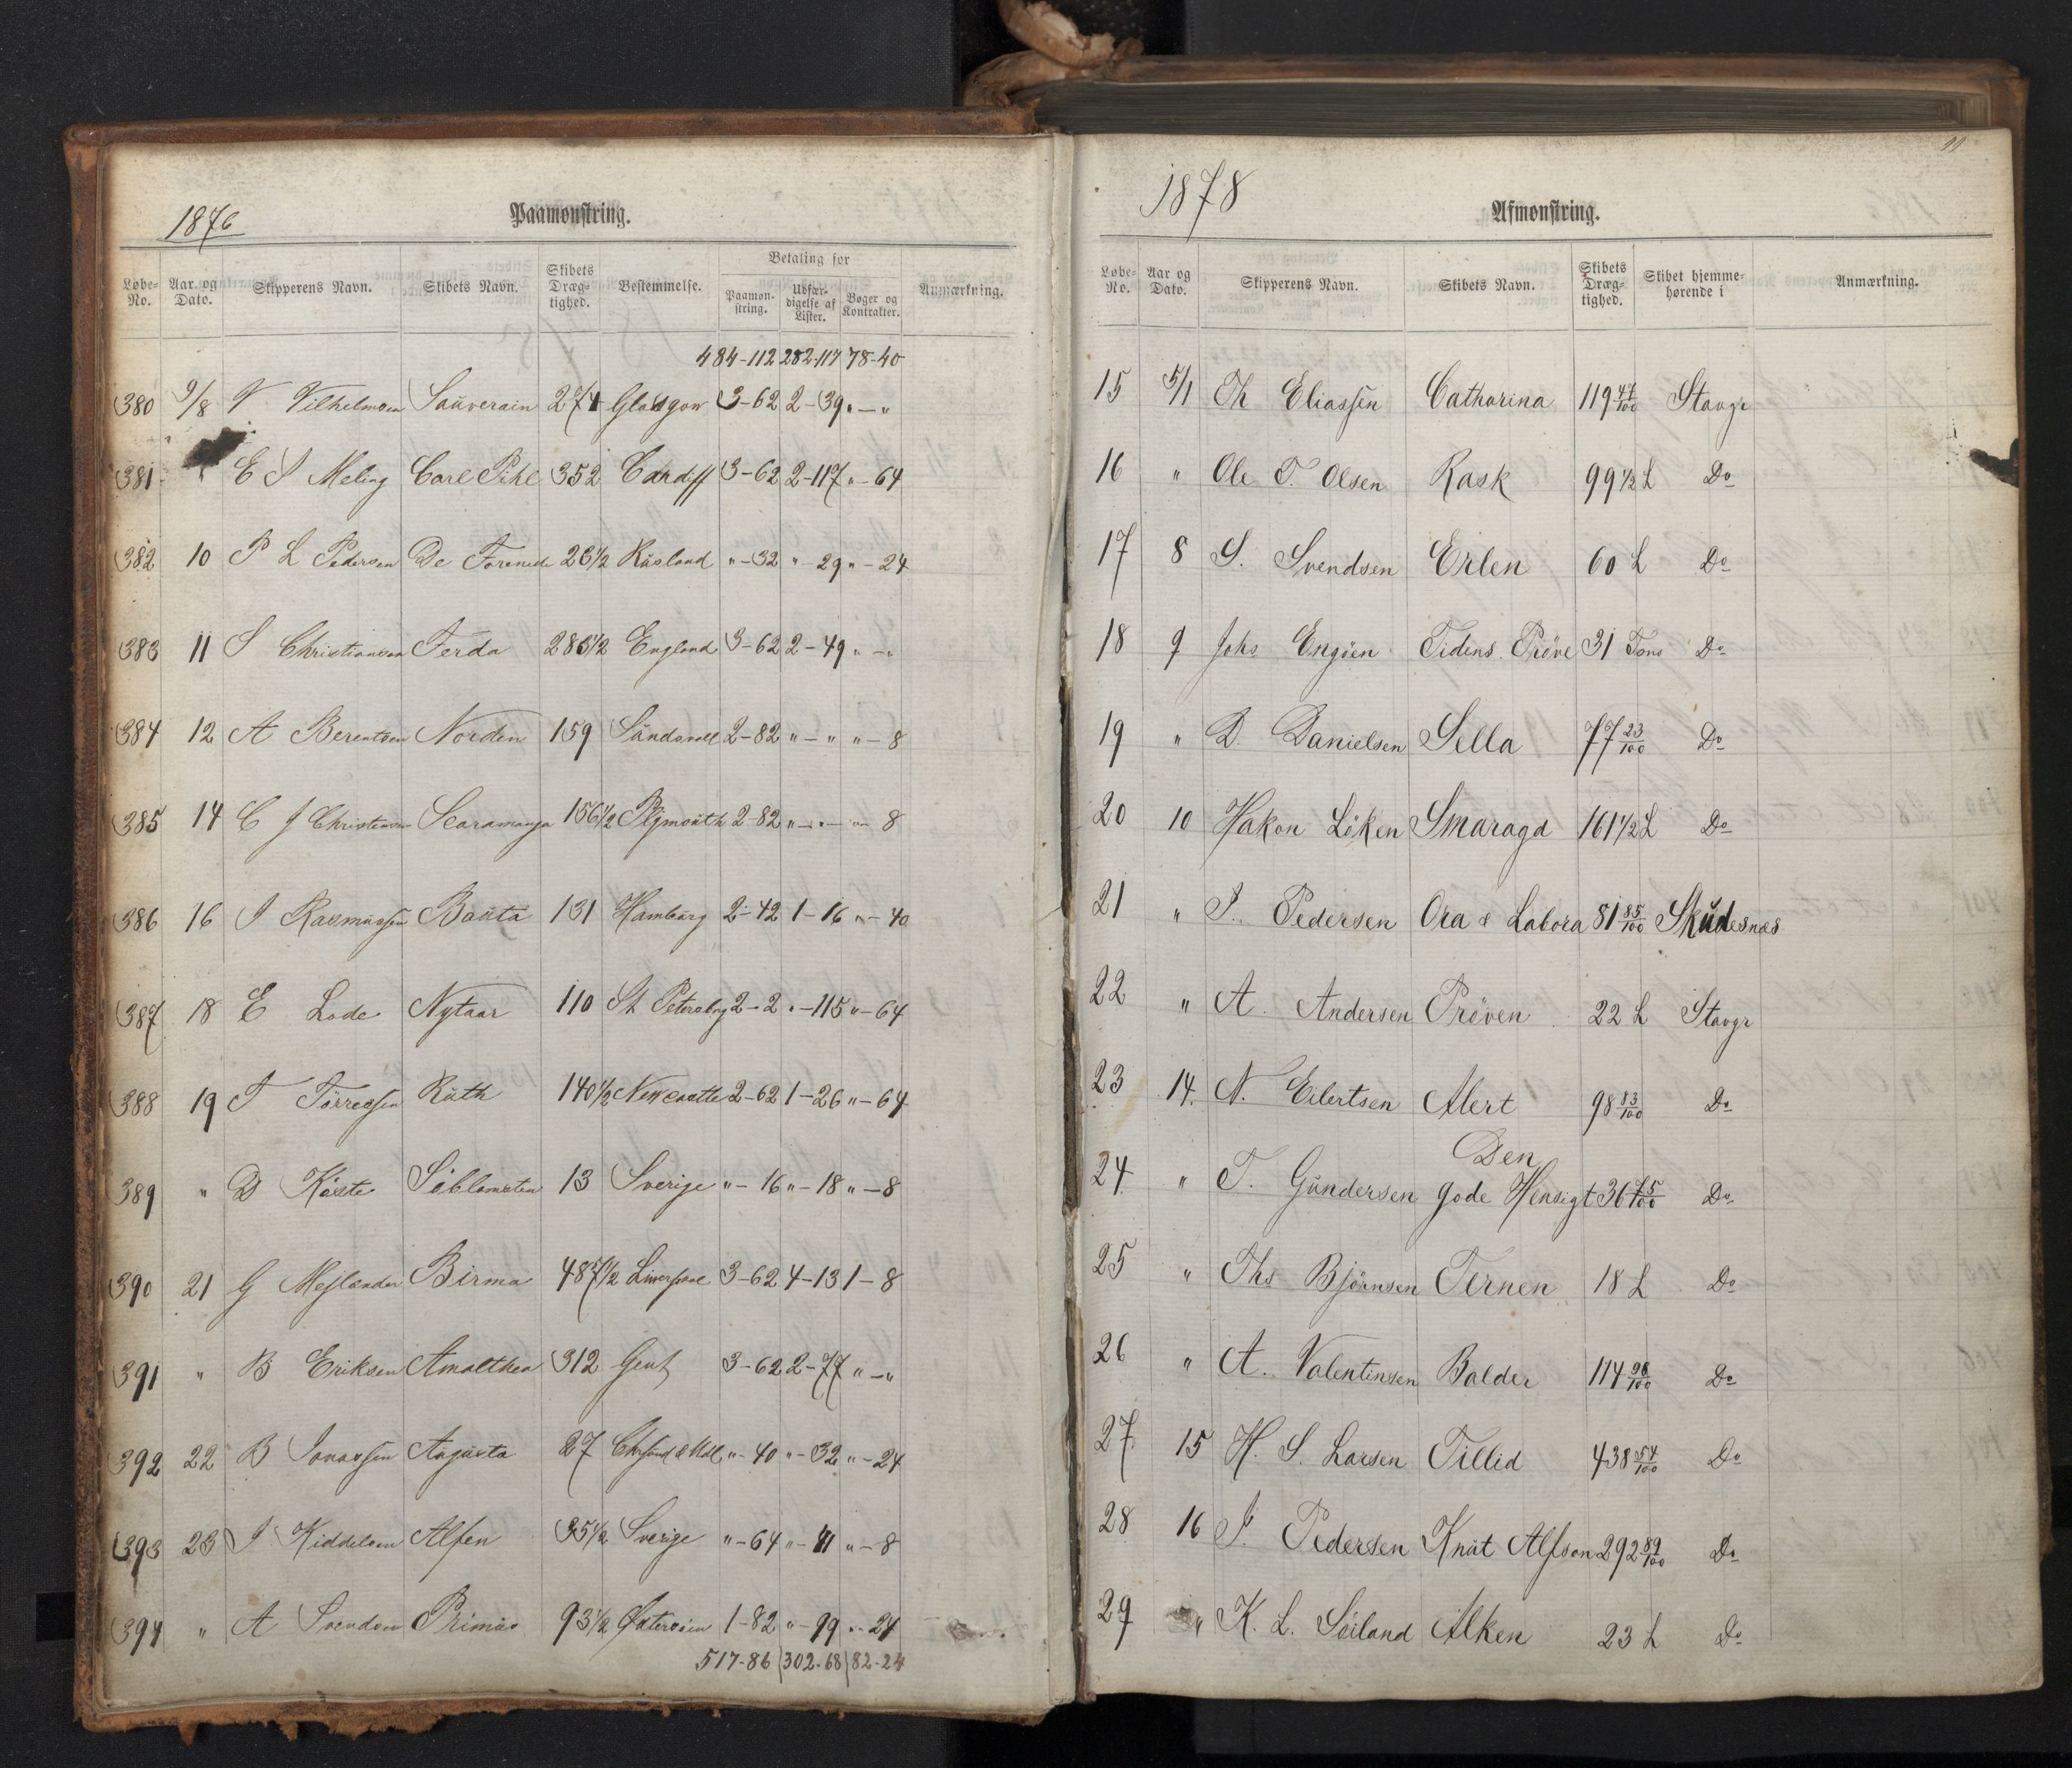 1876
Paamønstring.
Løbe-No. Aar og Dato. Skipperens Navn. Skibets Navn. Skibets Dræg-tighed. Bestemmelse. Betaling for Paamøn-string. Udfær-digelse af Lister. Bøger og Kontrakter. Anmærkning.
484-112 282-117 78-40
380 9/8 V Vilhelmsen Sauverain 274 Glasgow 3-62 2-39 "-"
381 " E I Meling Carl Pihl 352 Cardiff 3-62 2-117 "-64
382 10 P L Pedersen De Forenede 23 1/2 Rusland "-32 "-29 "-24
383 11 S Christiansen Ferda 285 1/2 England 3-62 2-49 "-"
384 12 A Berentsen Norden 159 Sundsvall 2-82 "-" "-8
385 14 C J Christensen Scaramanga 156 1/2 Plymouth 2-82 "-" "-8
386 16 I Rasmussen Bauta 131 Hamburg 2-42 1-16 "-40
387 18 E Lode Nytaar 110 St Petersborg 2-2 "-115 "-64
388 19 T Torresen Ruth 140 1/2 Newcastle 2-62 1-26 "-64
389 " D Köste Söblomsten 13 Sverige "-16 "-18 "-8
390 21 G Mejlænder Birma 487 1/2 Liverpool 3-62 4-13 1-8
391 " B Eriksen Amalthea 312 Gent 3-62 2-77 "-"
392 22 B Jonassen Augusta 27 "-40 "-32 "-24
393 23 I Kiddelsen Alfen 35 1/2 Sverige "-64 "-41 "-8
394 " A Svendsen Primus 93 1/2 Østersöen 1-82 "-99 "-24
517-86 302-68 82-24
11
1878
Afmønstring.
Løbe-No. Aar og Dato. Skipperens Navn. Skibets Navn. Skibets Dræg-tighed. Skibet hjemme-hørende i Anmærkning.
15 5/1 Th Eliassen Catharina 119 47/100 Stavgr
16 " Ole T. Olsen Rask 99 1/2 L Do
17 8 S. Svendsen Erlen 60 L Do
18 9 Johs Engöen Tidens Pröve 31 Tons Do
19 " D. Danielsen Sella 77 23/100 Do
20 10 Hakon Löken Smaragd 161 1/2 L Do
21 " P. Pedersen Ora & Labora 81 85/100 Skudesnæs
22 " A. Andersen Pröven 22 L Stavgr
23 14. N. Eilertsen Alert 98 83/100 Do
24 " T. Gundersen Den gode Hensigt 36 75/100 Do
25 " Ths Björnsen Ternen 18 L Do
26 " A. Valentinsen Balder 114 98/100 Do
27 15 H. S. Larsen Tillid 438 54/100 Do
28 16 P. Pedersen Knut Alfson 292 89/100 Do
29 " K. L. Söiland Alken 23 L Do